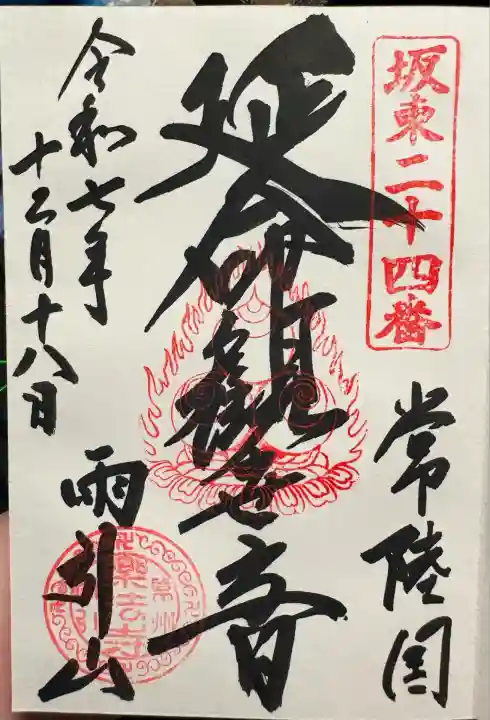 坂東二十四番
常陸国
延命観世音
令和七年
十二月十八日
雨引山
楽法寺